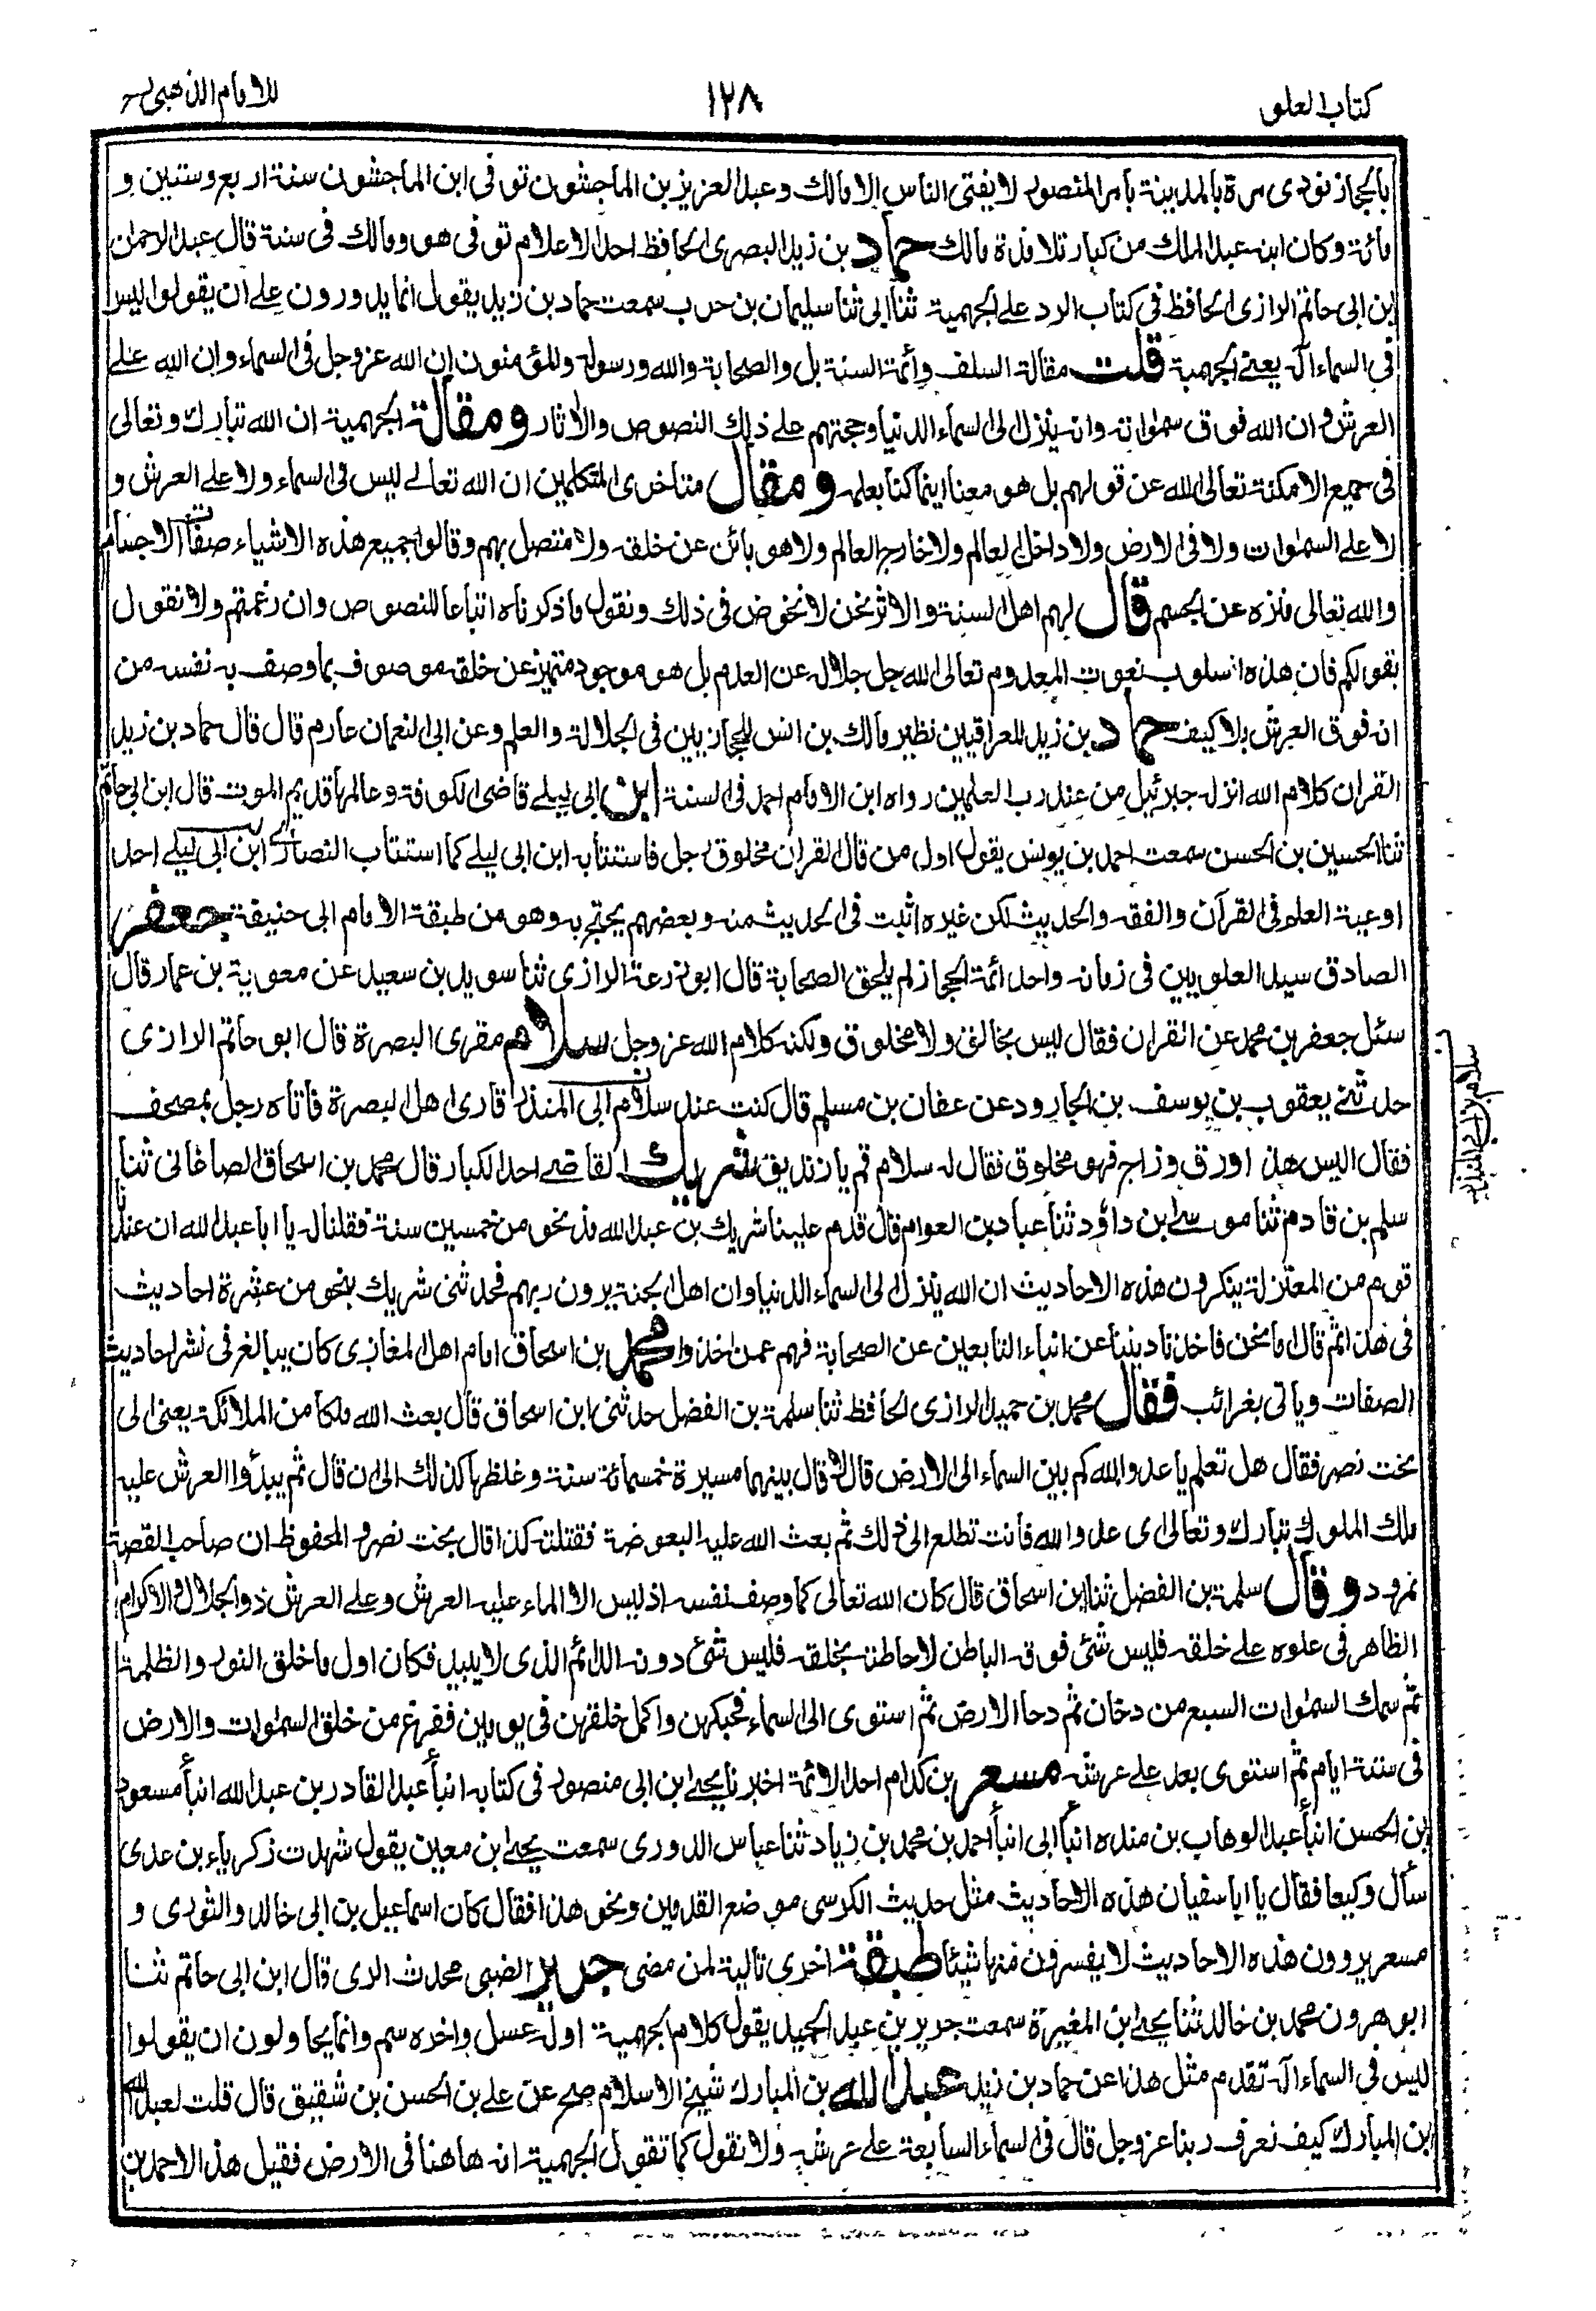 كتاب العلو
١٢٨
للامام الذهبي رح
بالحجاز نودى مرة بالمدينة بامر المنصور لا يفتى الناس الا مالك وعبد العزيز بن الماجشون توفى ابن الماجشون سنة اربع وستين و
مائة وكان ابنه عبد الملك من كبار تلامذة مالك حماد بن زيد البصرى الحافظ احد الاعلام توفى هو ومالك فى سنة قال عبد الرحمان
ابن ابى حاتم الرازى الحافظ فى كتاب الرد على الجهمية ثنا ابى ثنا سليمان بن حرب سمعت حماد بن زيد يقول انما يدورون على ان يقولوا ليس
فى السماء اله يعنى الجهمية قلت مقالة السلف وأئمة السنة بل والصحابة والله ورسوله والمؤمنون ان الله عز وجل فى السماء وان الله على
العرش وان الله فوق سمواته وانه ينزل الى السماء الدنيا وحجتهم على ذلك النصوص والاثار ومقالة الجهمية ان الله تبارك وتعالى
فى جميع الامكنة تعالى الله عن قولهم بل هو معنا اينما كنا بعلمه ومقال متأخرى المتكلمين ان الله تعالى ليس فى السماء ولا على العرش و
لا على السموات ولا فى الارض ولا داخل العالم ولا خارج العالم ولا هو بائن عن خلقه ولا متصل بهم وقالوا جميع هذه الاشياء صفات الاجسام
والله تعالى منزه عن الجسم قال لهم اهل السنة والاثر نحن لا نخوض فى ذلك ونقول ما ذكرناه اتباعا للنصوص وان زعمتم ولا نقول
بقولكم فان هذه السلوب نعوت المعدوم تعالى الله جل جلاله عن العدم بل هو موجود متميز عن خلقه موصوف بما وصف به نفسه من
انه فوق العرش بلا كيف حماد بن زيد للعراقيين نظير مالك بن انس للحجازيين فى الجلالة والعلم وعن ابى النعمان عارم قال قال حماد بن زيد
القران كلام الله انزله جبرئيل من عند رب العلمين رواه ابن الامام احمد فى السنة ابن ابى ليلى قاضى الكوفة وعالمها قديم الموت قال ابن ابى حاتم
ثنا الحسين بن الحسن سمعت احمد بن يونس يقول اول من قال القران مخلوق رجل فاستتابه ابن ابى ليلى كما استتاب النصارى ابن ابى ليلى احد
اوعية العلم فى القرآن والفقه والحديث لكن غيره اثبت فى الحديث منه وبعضهم يحتج به وهو من طبقة الامام ابى حنيفة جعفر
الصادق سيد العلويين فى زمانه واحد ائمة الحجاز لم يلحق الصحابة قال ابو زرعة الرازى ثنا سويد بن سعيد عن معوية بن عمار قال
سئل جعفر بن محمد عن القران فقال ليس بخالق ولا مخلوق ولكنه كلام الله عز وجل سلام مقرى البصرة قال ابو حاتم الرازى
حدثنى يعقوب بن يوسف بن الجارود عن عفان بن مسلم قال كنت عند سلام ابى المنذر قارئ اهل البصرة فاتاه رجل بمصحف
سلام بن ابى المنذر
فقال اليس هذا ورق وزاج فهو مخلوق فقال له سلام قم يا زنديق شريك القاضى احد الكبار قال محمد بن اسحاق الصاغانى ثنا
سلم بن قادم ثنا موسى ابن داؤد ثنا عباد بن العوام قال قدم علينا شريك بن عبد الله مذ نحو من خمسين سنة فقلنا له يا ابا عبد الله ان عندنا
قوم من المعتزلة ينكرون هذه الاحاديث ان الله ينزل الى السماء الدنيا وان اهل الجنة يرون ربهم فحدثنى شريك بنحو من عشرة احاديث
فى هذا ثم قال ما نحن فاخذنا ديننا عن ابناء التابعين عن الصحابة فهم عمن اخذوا محمد بن اسحاق امام اهل المغازى كان يبالغ فى نشر احاديث
الصفات وياتى بغرائب فقال محمد بن حميد الرازى الحافظ ثنا سلمة بن الفضل حدثنى ابن اسحاق قال بعث الله ملكا من الملائكة يعنى الى
بخت نصر فقال هل تعلم يا عدو الله كم بين السماء الى الارض قال لا قال بينهما مسيرة خمسمائة سنة وغلظها كذلك الى ان قال ثم يبدؤا العرش عليه
ملك الملوك تبارك وتعالى اى عدو الله فانت تطلع الى ذلك ثم بعث الله عليه البعوضة فقتلته كذا قال بخت نصر والمحفوظ ان صاحب القصة
نمرود وقال سلمة بن الفضل ثنا ابن اسحاق قال كان الله تعالى كما وصف نفسه اذ ليس الا الماء عليه العرش وعلى العرش ذو الجلال والاكرام
الظاهر فى علوه على خلقه فليس شئ فوقه الباطن لاحاطته بخلقه فليس شئ دونه الدائم الذى لا يبيد فكان اول ما خلق النور والظلمة
ثم سمك السموات السبع من دخان ثم دحا الارض ثم استوى الى السماء فحبكهن واكمل خلقهن فى يومين ففرغ من خلق السموات والارض
فى ستة ايام ثم استوى بعد على عرشه مسعر بن كدام احد الائمة اخبرنا يحيى ابن ابى منصور فى كتابه انبأ عبد القادر بن عبد الله انبأ مسعود
بن الحسن انبأ عبد الوهاب بن منده انبأ ابى انبأ احمد بن محمد بن زياد ثنا عباس الدورى سمعت يحيى ابن معين يقول شهدت زكرياء بن عدى
سأل وكيعا فقال يا ابا سفيان هذه الاحاديث مثل حديث الكرسى موضع القدمين ونحو هذا فقال كان اسماعيل بن ابى خالد والثورى و
مسعر يروون هذه الاحاديث لا يفسرون منها شيئا طبقة اخرى تالية لمن مضى جرير الضبى محدث الرى قال ابن ابى حاتم ثنا
ابو هرون محمد بن خالد ثنا يحيى ابن المغيرة سمعت جرير بن عبد الحميد يقول كلام الجهمية اوله عسل واخره سم وانما يحاولون ان يقولوا
ليس فى السماء اله تقدم مثل هذا عن حماد بن زيد عبد الله بن المبارك شيخ الاسلام صح عن على بن الحسن بن شقيق قال قلت لعبد الله
ابن المبارك كيف نعرف ربنا عز وجل قال فى السماء السابعة على عرشه ولا نقول كما تقول الجهمية انه هاهنا فى الارض فقيل هذا لاحمد بن